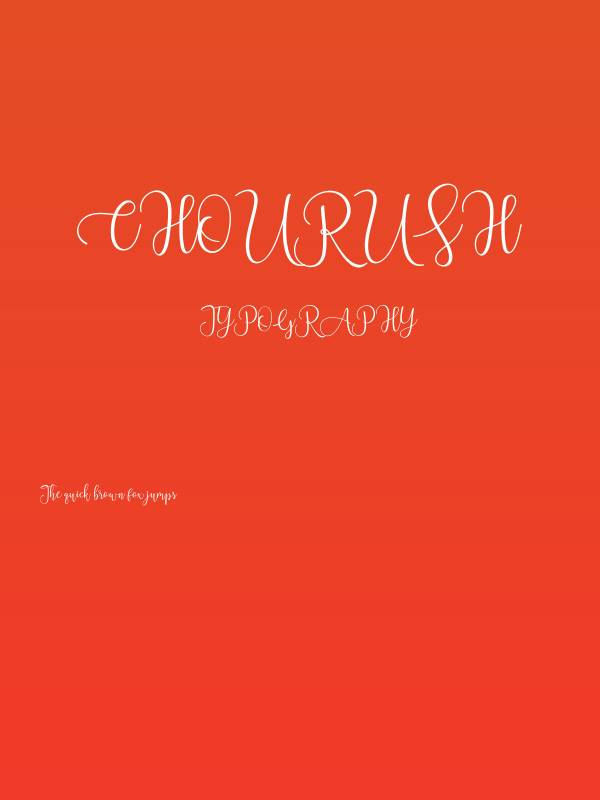 CHOURUSH
TYPOGRAPHY
The quick brown fox jumps